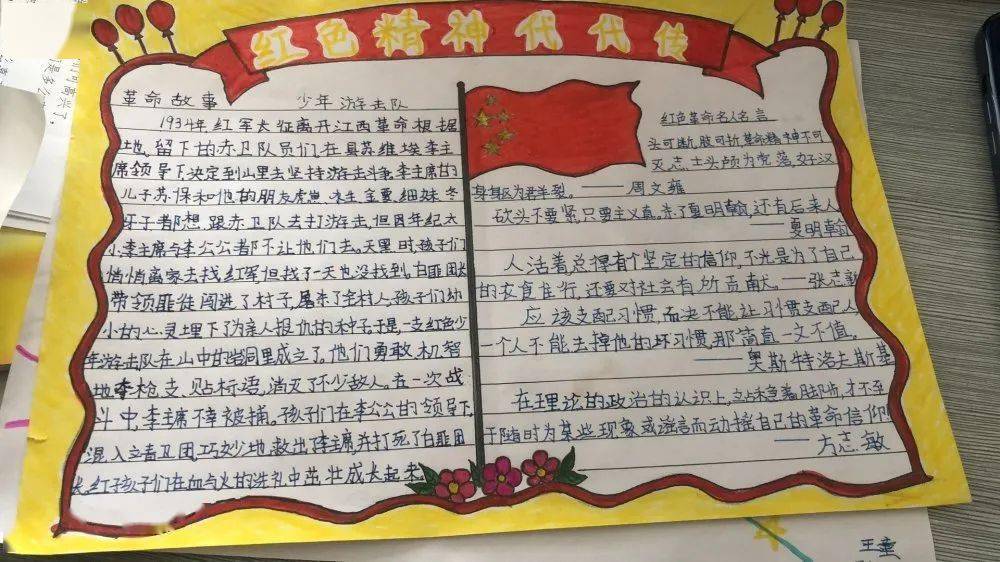 红色精神代代传
革命故事 少年游击队
1934年红军长征离开江西革命根据
地,留下的赤卫队员们在县苏维埃李主
席领导下决定到山里去坚持游击斗争,李主席的
儿子苏保和他的朋友虎崽、来生、金夏、细妹、冬
牙子都想跟赤卫队去打游击,但因年纪太
小,李主席与李公公都不让他们去。天黑时,孩子们
悄悄离家去找红军但找了一天也没找到,白匪团长
带领匪徒闯进了村子,屠杀了全村人,孩子们幼
小的心灵埋下了为亲人报仇的种子于是,一支红色少
年游击队在山中的岩洞里成立了,他们勇敢、机智
地夺枪支、贴标语,消灭了不少敌人。在一次战
斗中,李主席不幸被捕。孩子们在李公公的领导下,
混入立青卫团,巧妙地救出李主席,并打死了白匪团
长,红孩子们在血与火的洗礼中茁壮成长起来
红色革命名人名言
头可断,肢可折,革命精神不可
灭,志士头颅为党落,好汉
身躯为群裂。——周文雍
砍头不要紧,只要主义真,杀了夏明翰,还有后来人
——夏明翰
人活着,总得有个坚定的信仰,不光是为了自己
的衣食住行,还要对社会有所贡献——张志新
应该支配习惯,而决不能让习惯支配人
一个人不能去掉他的坏习惯,那简直一文不值。
——奥斯特洛夫斯基
在理论的政治的认识上,站稳着脚步,才不至
于随时为某些现象或谣言而动摇自己的革命信仰
——方志敏
王童